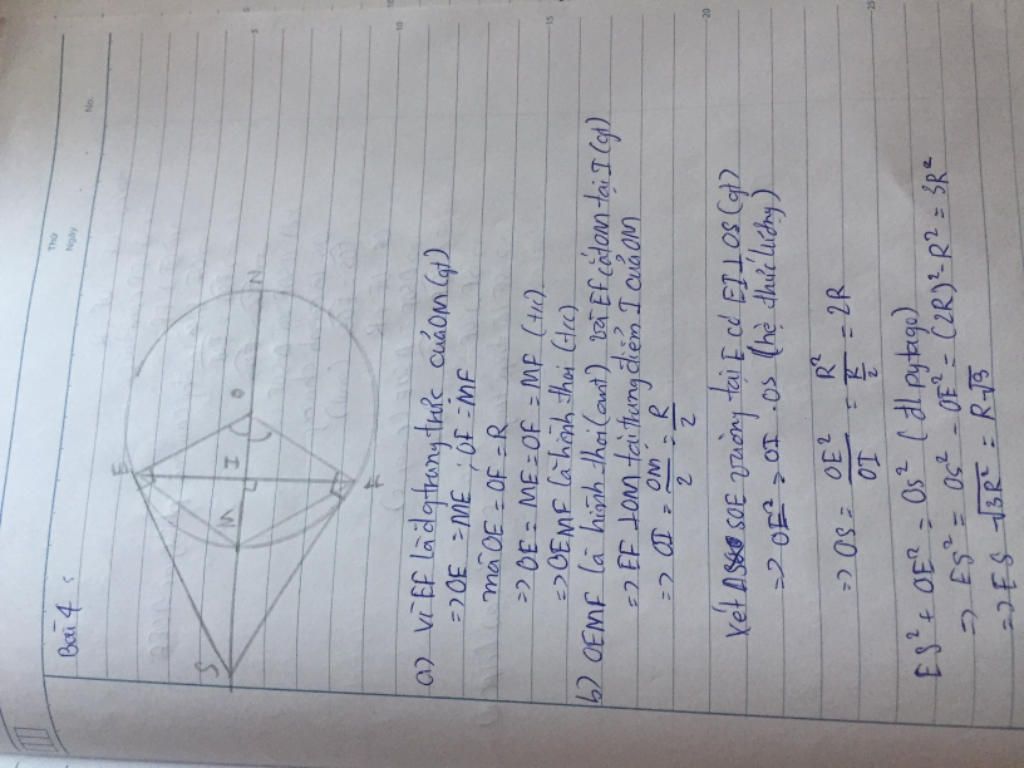 Thứ
Ngày
No.
Bài 4:
S
E
M
I
O
N
F
a) Vì EF là đg trung trực của OM (gt)
=> OE = ME ; OF = MF
mà OE = OF = R
=> OE = ME = OF = MF (t/c)
=> OEMF là hình thoi (t/c)
b) OEMF là hình thoi (cmt) và EF cắt OM tại I (gt)
=> EF ⊥ OM tại trung điểm I của OM
=> OI = OM/2 = R/2
Xét Δ SOE vuông tại E có EI ⊥ OS (gt)
=> OE² = OI . OS (hệ thức lượng)
=> OS = OE²/OI = R²/(R/2) = 2R
ES² + OE² = OS² (đl pytago)
=> ES² = OS² - OE² = (2R)² - R² = 3R²
=> ES √3R² = R√3
5
10
15
20
25